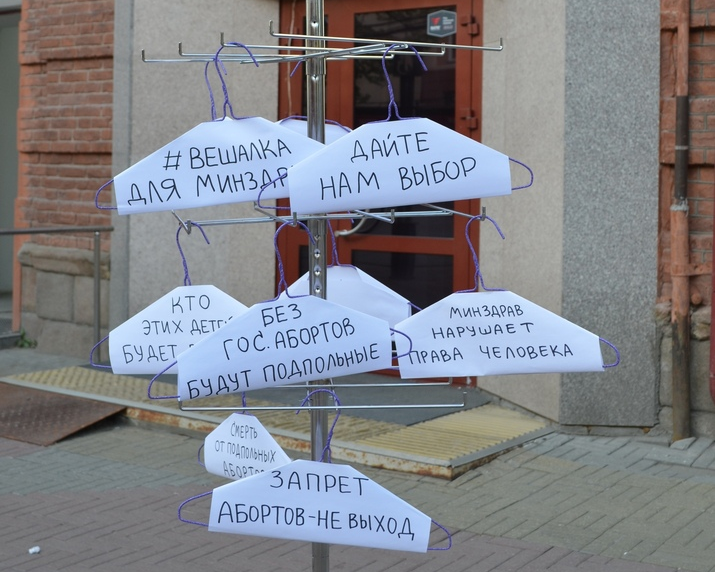 # ВЕШАЛКА
ДЛЯ
ДАЙТЕ
НАМ ВЫБОР
КТО
ЭТИХ
БУДЕТ
БЕЗ
ГОС. АБОРТОВ
БУДУТ ПОДПОЛЬНЫЕ
МИНЗДРАВ
НАРУШАЕТ
ПРАВА ЧЕЛОВЕКА
СМЕРТЬ
ОТ ПОДПОЛЬНЫХ
ЗАПРЕТ
АБОРТОВ-НЕ ВЫХОД